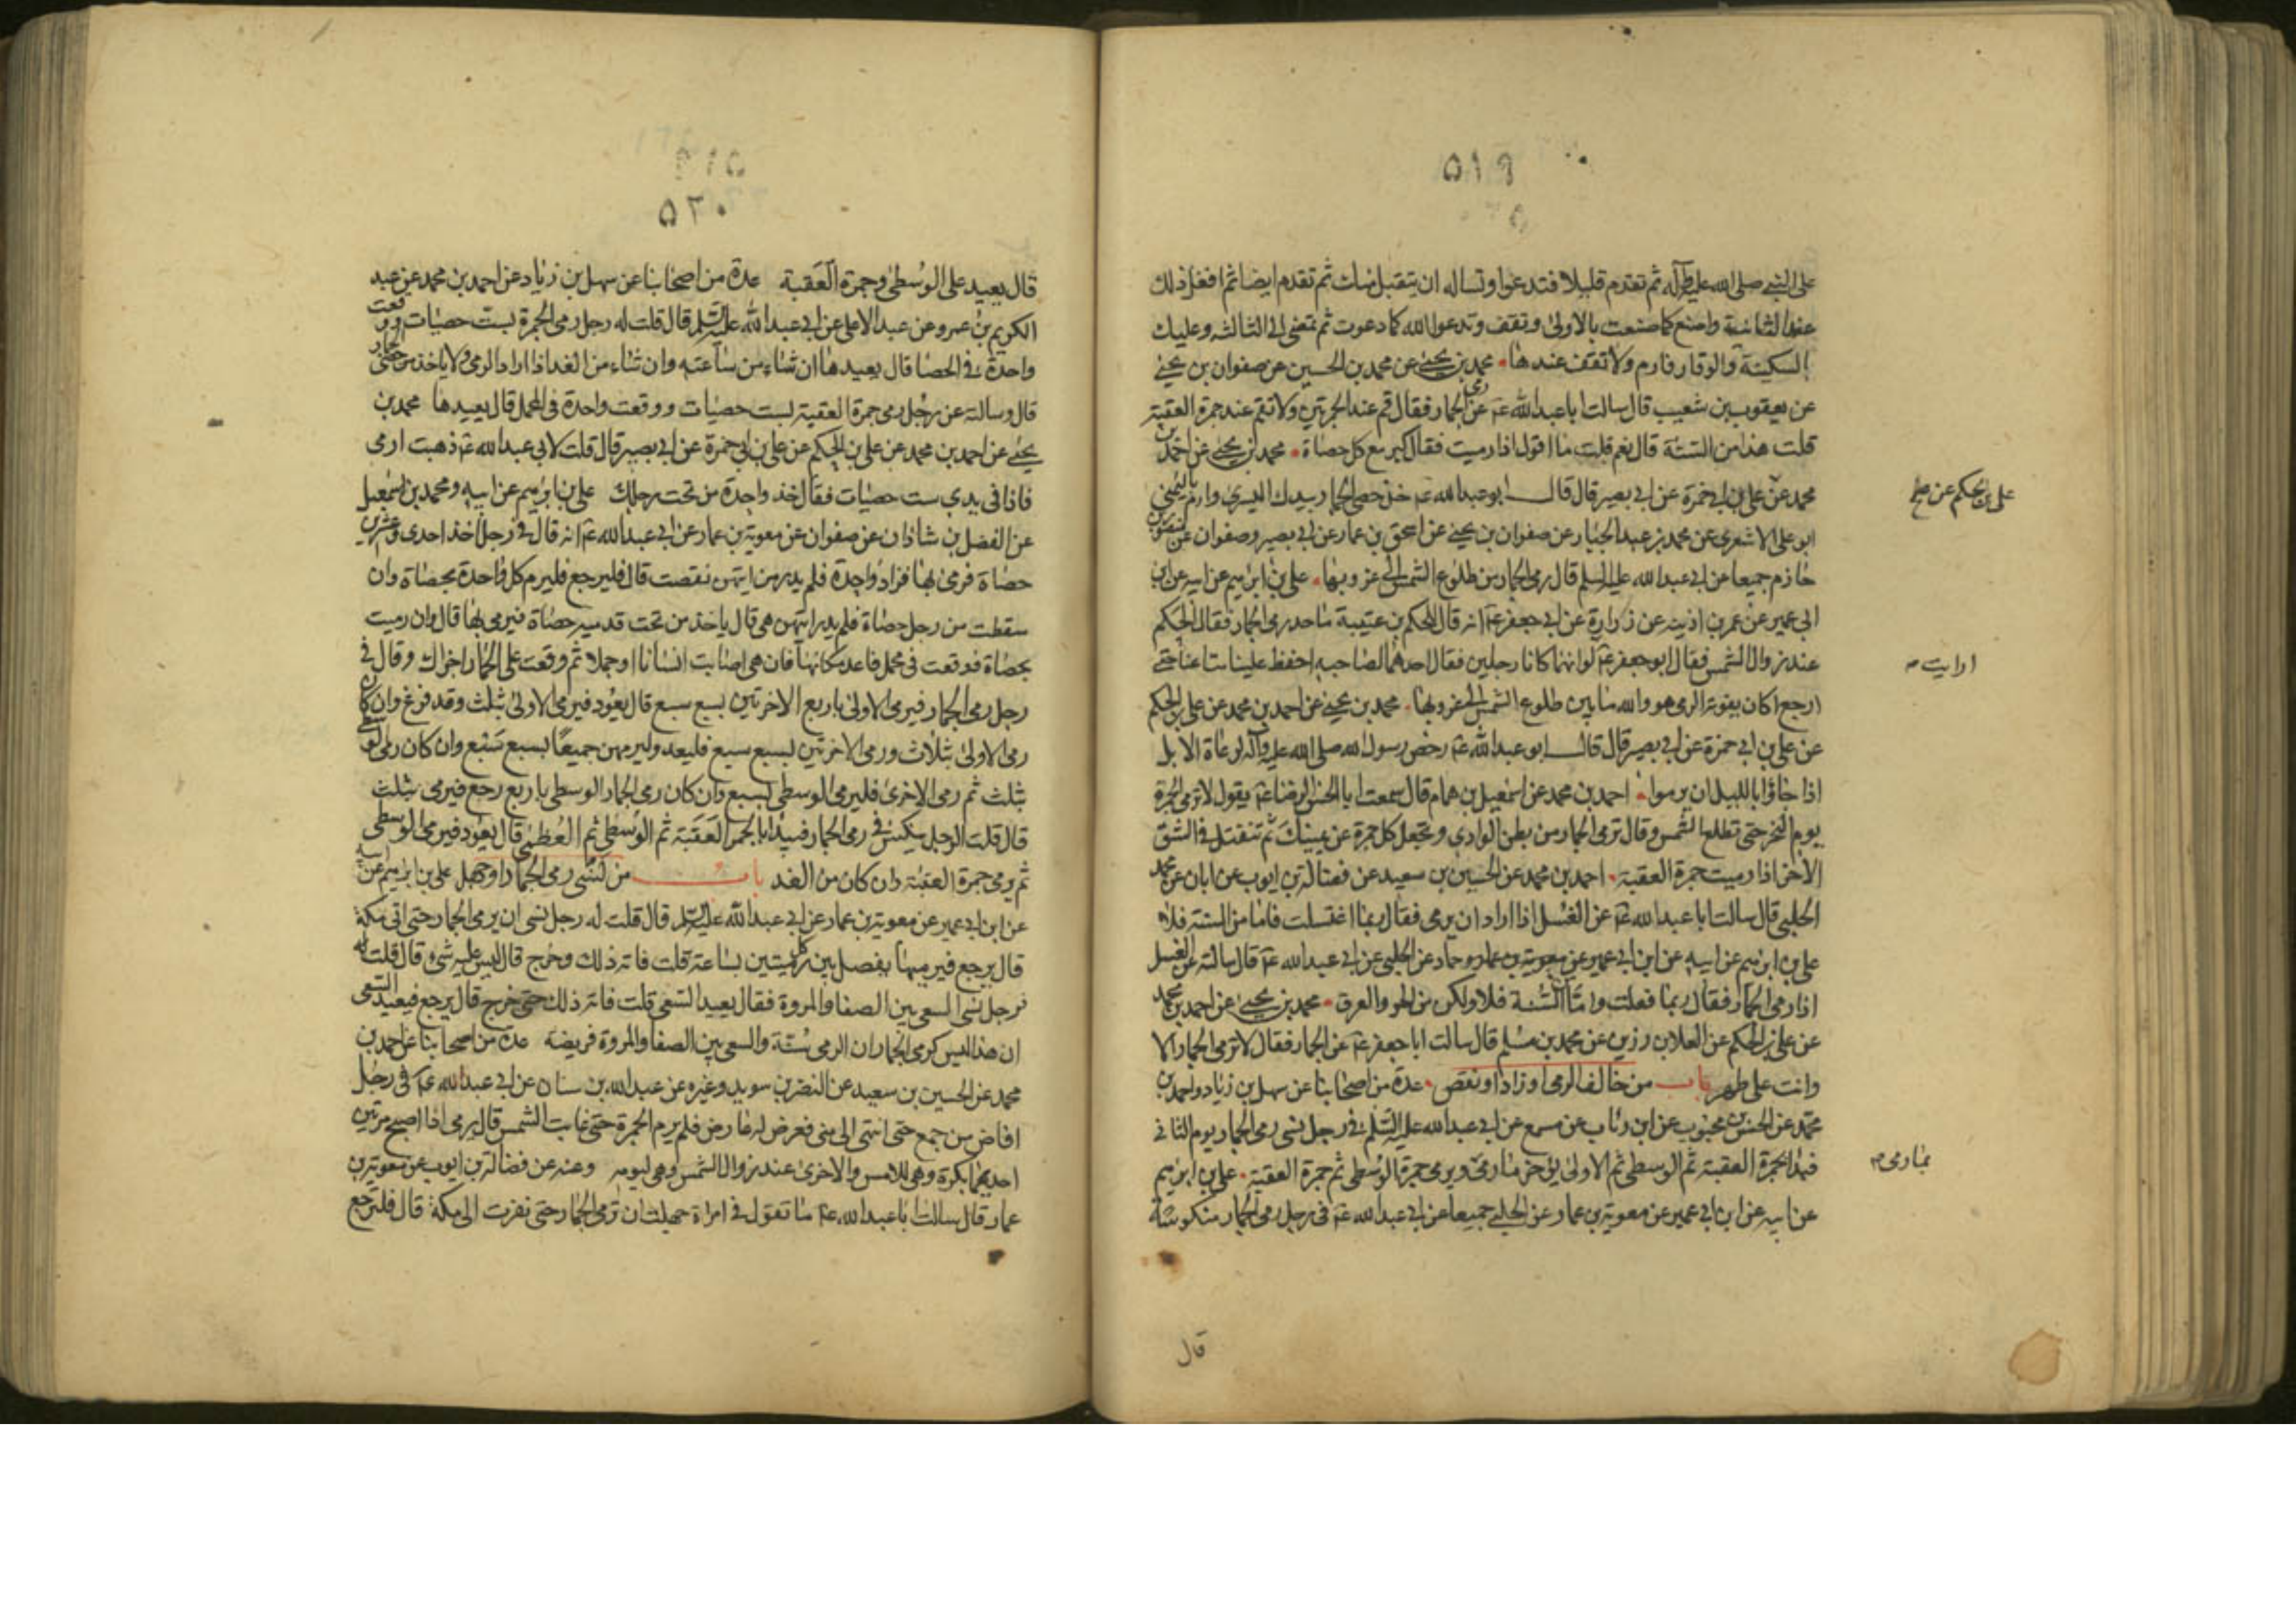 ٥١٩
على النبي صلى الله عليه وآله ثم تقدم قليلا فتدعوا وتساله ان يتقبل منك ثم تقدم ايضا ثم افعل ذلك
عند الثانية واصنع كما صنعت بالاولى وتقف وتدعوا الله كما دعوت ثم تمضى الى الثالثه وعليك
السكينة والوقار فارم ولا تقف عندها محمد بن يحيى عن محمد بن الحسين عن صفوان بن يحيى
عن يعقوب بن شعيب قال سالت ابا عبد الله عم عن رمى الجمار فقال قم عند الجمرتين ولا تقم عند جمرة العقبة
قلت هذا من السنة قال نعم قلت ما اقول اذا رميت فقال كبر مع كل حصاة محمد بن يحيى عن احمد بن
محمد عن علي بن ابى حمزة عن ابى بصير قال قال ابو عبد الله عم خذ حصى الجمار بيدك اليسرى وارم باليمنى
على بن الحكم عن
ابو على الاشعرى عن محمد بن عبد الجبار عن صفوان بن يحيى عن اسحق بن عمار عن ابى بصير وصفوان عن منصور بن
حازم جميعا عن ابى عبد الله عليه السلم قال رمى الجمار من طلوع الشمس الى غروبها على بن ابرهيم عن ابيه عن ابن
ابى عمير عن عمر بن اذينه عن زرارة عن ابى جعفر عم انه قال للحكم بن عتيبة ما حد رمى الجمار فقال الحكم
عند زوال الشمس فقال ابو جعفر عم لو انهما كانا رجلين فقال احدهما لصاحبه احفظ علينا متاعنا حتى
ارايت
ارجع اكان يفوته الرمى هو والله ما بين طلوع الشمس الى غروبها محمد بن يحيى عن احمد بن محمد عن على بن الحكم
عن على بن ابى حمزة عن ابى بصير قال قال ابو عبد الله عم رخص رسول الله صلى الله عليه وآله لرعاة الابل
اذا جاؤا بالليل ان يرموا احمد بن محمد عن اسمعيل بن همام قال سمعت ابا الحسن الرضا عم يقول لا ترمى الجمرة
يوم النحر حتى تطلع الشمس وقال ترمى الجمار من بطن الوادى وتجعل كل جمرة عن يمينك ثم تنفتل فى الشق
الاخر اذا رميت جمرة العقبة احمد بن محمد عن الحسين بن سعيد عن فضالة بن ايوب عن ابان عن محمد
الحلبى قال سالت ابا عبد الله عم عن الغسل اذا اراد ان يرمى فقال ربما اغتسلت فاما من السنة فلا
على بن ابرهيم عن ابيه عن ابن ابى عمير عن معوية بن عمار وحماد عن الحلبى عن ابى عبد الله عم قال سالته عن الغسل
اذا رمى الجمار فقال ربما فعلت واما السنة فلا ولكن من الحر والعرق محمد بن يحيى عن احمد بن محمد
عن على بن الحكم عن العلا بن رزين عن محمد بن مسلم قال سالت ابا جعفر عم عن الجمار فقال لا ترمى الجمار الا
وانت على طهر باب من خالف الرمى او زاد او نقص عدة من اصحابنا عن سهل بن زياد واحمد بن
محمد عن الحسن بن محبوب عن ابن رئاب عن مسمع عن ابى عبد الله عليه السلم فى رجل نسى رمى الجمار يوم الثانى
فبدا بجمرة العقبة ثم الوسطى ثم الاولى يؤخر ما رمى ويرمى جمرة الوسطى ثم جمرة العقبة على بن ابرهيم
بما رمى
عن ابيه عن ابن ابى عمير عن معوية بن عمار عن الحلبى جميعا عن ابى عبد الله عم فى رجل رمى الجمار منكوسة
قال
٥٢٠
قال يعيد على الوسطى وجمرة العقبة عدة من اصحابنا عن سهل بن زياد عن احمد بن محمد عن عبد
الكريم بن عمرو عن عبد الاعلى عن ابى عبد الله عليه السلم قال قلت له رجل رمى الجمرة بست حصيات ووقعت
واحدة فى الحصا قال يعيدها ان شاء من ساعته وان شاء من الغد اذا اراد الرمى ولا ياخذ من حصى الجمار
قال وسالته عن رجل رمى جمرة العقبة بست حصيات ووقعت واحدة فى المحمل قال يعيدها محمد بن
يحيى عن احمد بن محمد عن على بن الحكم عن على بن ابى حمزة عن ابى بصير قال قلت لابى عبد الله عم ذهبت ارمى
فاذا فى يدى ست حصيات فقال خذ واحدة من تحت رجلك على بن ابرهيم عن ابيه ومحمد بن اسمعيل
عن الفضل بن شاذان عن صفوان عن معوية بن عمار عن ابى عبد الله عم انه قال فى رجل اخذ احدى وعشرين
حصاة فرمى بها فزاد واحدة فلم يدر من ايتهن نقصت قال فليرجع فليرم كل واحدة بحصاة وان
سقطت من رجل حصاة فلم يدر ايتهن هى قال ياخذ من تحت قدميه حصاة فيرمى بها قال وان رميت
بحصاة فوقعت فى محمل فاعد مكانها فان هى اصابت انسانا او جملا ثم وقعت على الجمار اجزاك وقال فى
رجل رمى الجمار فيرمى الاولى باربع والاخرتين بسبع سبع قال يعود فيرمى الاولى بثلث وقد فرغ وان كان
رمى الاولى بثلاث ورمى الاخرتين بسبع سبع فليعد وليرمهن جميعا بسبع سبع وان كان رمى الوسطى
بثلث ثم رمى الاخرى فليرمى الوسطى بسبع وان كان رمى الجمار الوسطى باربع رجع فيرمى بثلث
قال قلت الرجل ينكس فى رمى الجمار فيبدا بالجمرة العقبة ثم الوسطى ثم العظمى قال يعود فيرمى الوسطى
ثم يرمى جمرة العقبة وان كان من الغد باب من نسى رمى الجمار او جهل على بن ابرهيم عن ابيه
عن ابن ابى عمير عن معوية بن عمار عن ابى عبد الله عليه السلم قال قلت له رجل نسى ان يرمى الجمار حتى اتى مكة
قال يرجع فيرميها يفصل بين كل رميتين بساعة قلت فاته ذلك وخرج قال ليس عليه شئ قال قلت له
فرجل نسى السعى بين الصفا والمروة فقال يعيد السعى قلت فاته ذلك حتى خرج قال يرجع فيعيد السعى
ان هذا ليس كرمى الجمار ان الرمى سنة والسعى بين الصفا والمروة فريضة عدة من اصحابنا عن احمد بن
محمد عن الحسين بن سعيد عن النضر بن سويد وغيره عن عبد الله بن سنان عن ابى عبد الله عم فى رجل
افاض من جمع حتى انتهى الى منى فعرض له عارض فلم يرم الجمرة حتى غابت الشمس قال يرمى اذا اصبح مرتين
احديهما بكرة وهى للامس والاخرى عند زوال الشمس وهى ليومه وعنه عن فضالة بن ايوب عن معوية بن
عمار قال سالت ابا عبد الله عم ما تقول فى امراة جهلت ان ترمى الجمار حتى نفرت الى مكة قال فلترجع